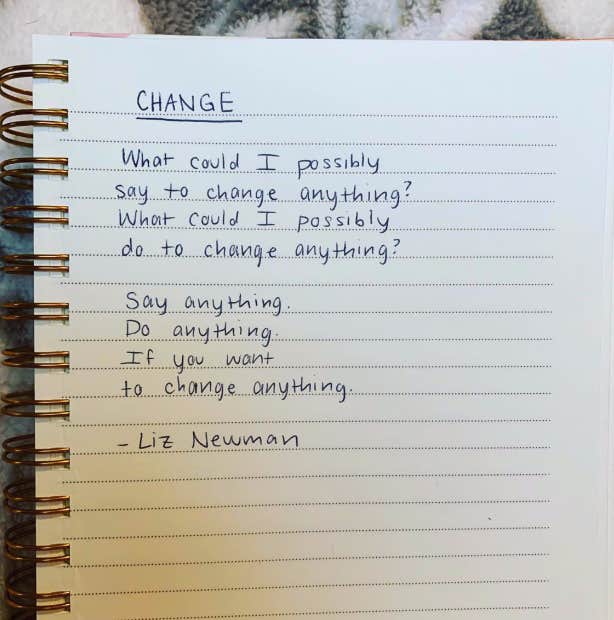 CHANGE
What could I possibly
say to change anything?
What could I possibly
do to change anything?
Say anything.
Do anything.
If you want
to change anything.
- Liz Newman